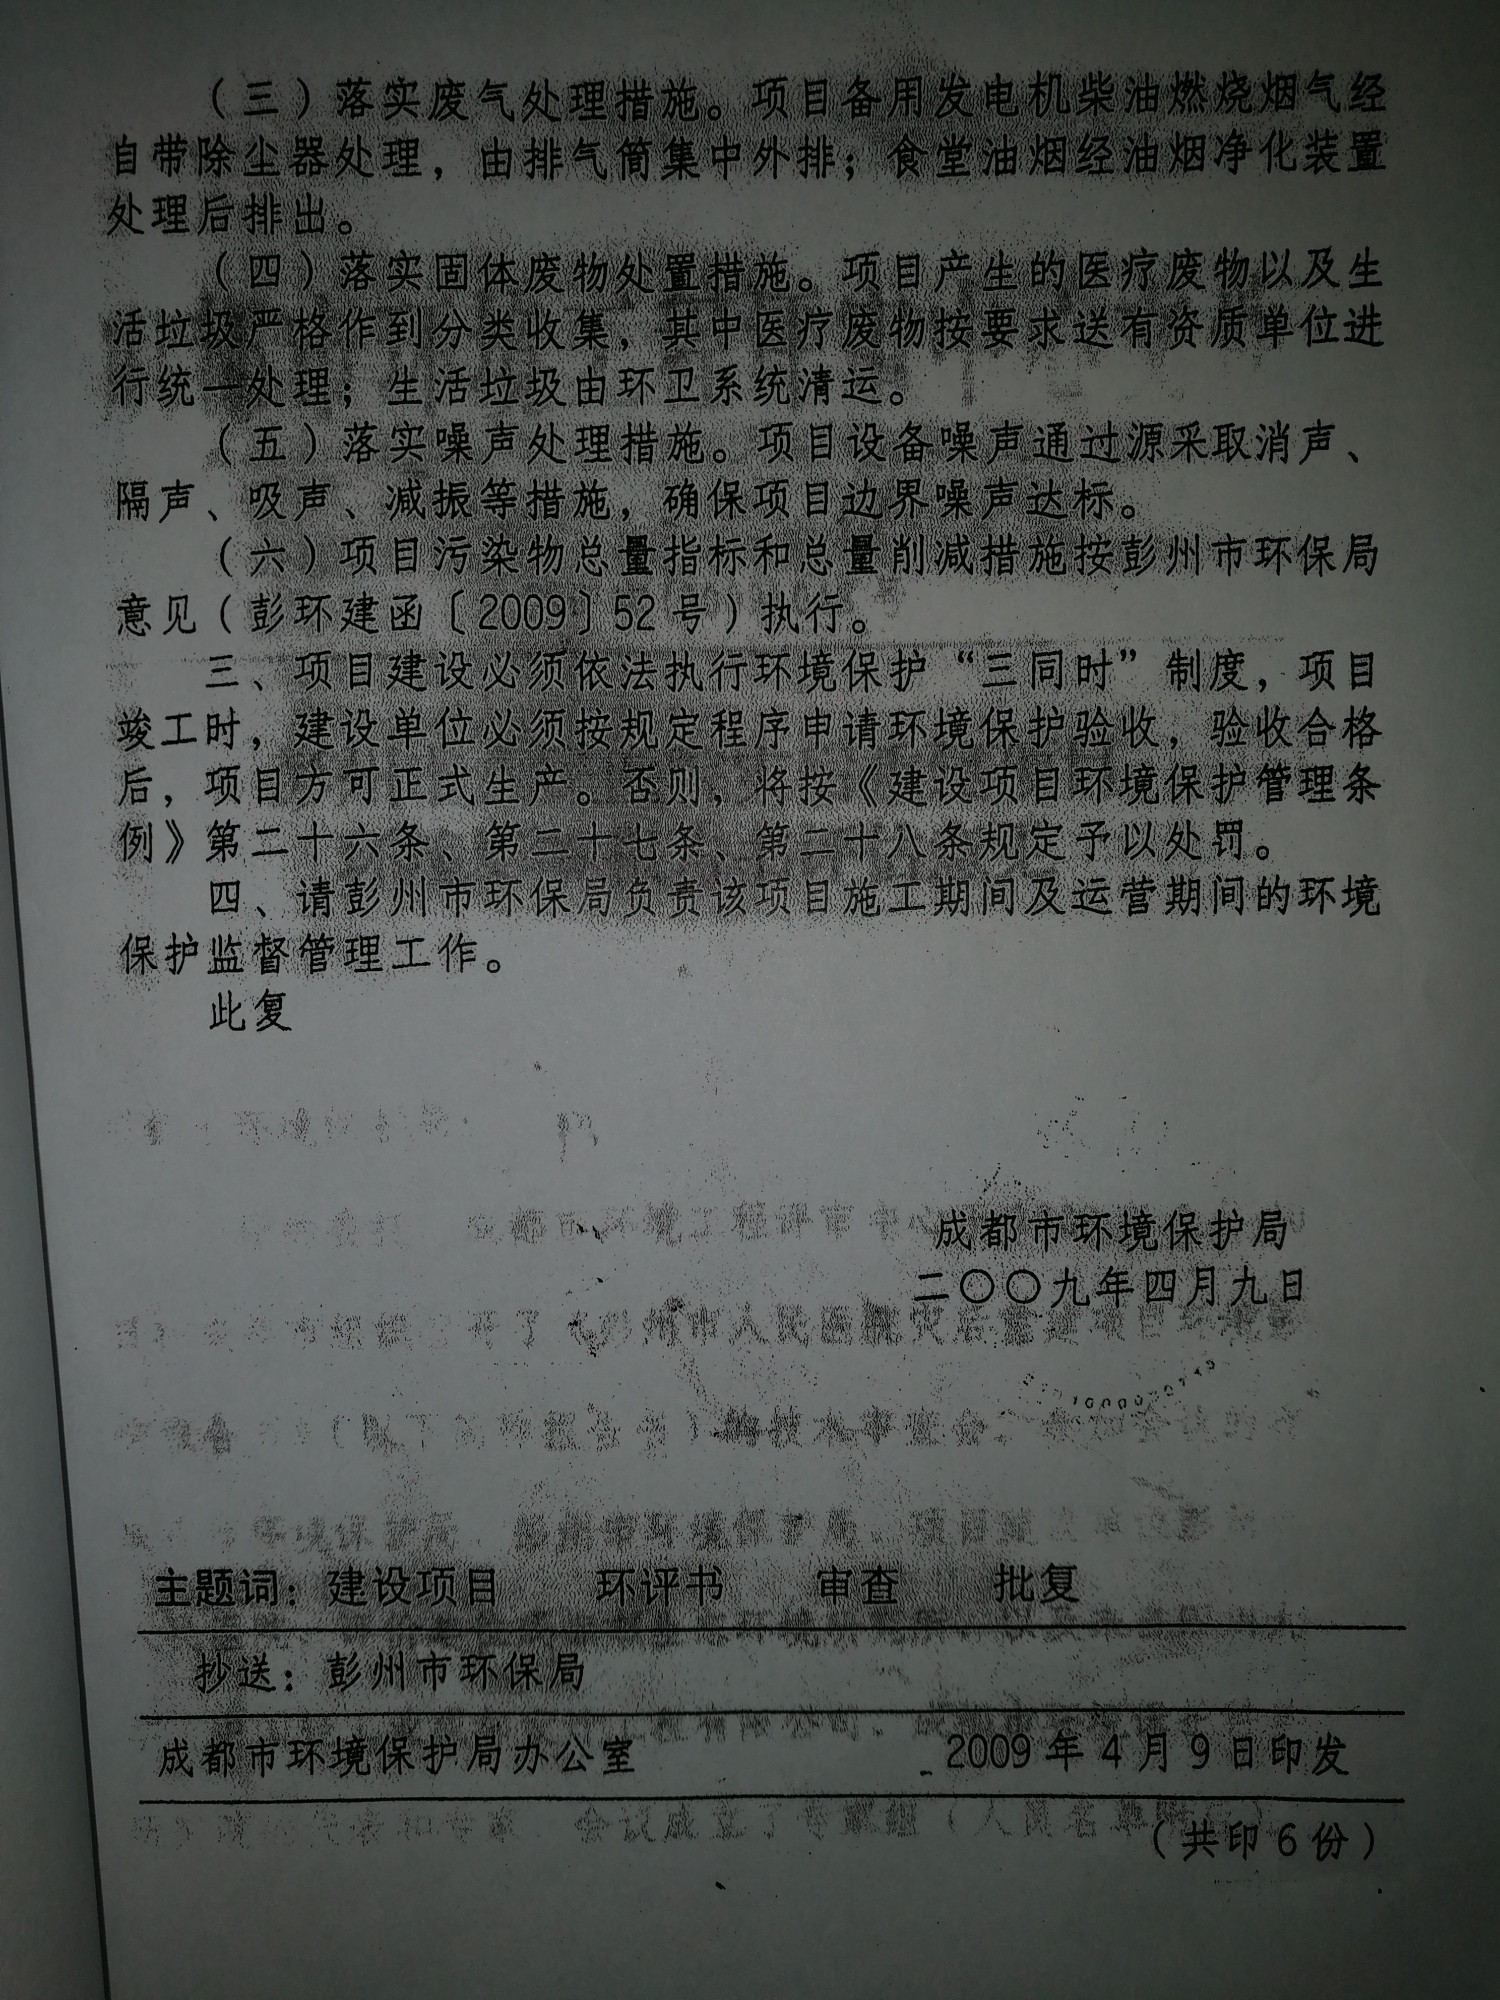 （三）落实废气处理措施。项目备用发电机柴油燃烧烟气经
自带除尘器处理，由排气筒集中外排；食堂油烟经油烟净化装置
处理后排出。
（四）落实固体废物处置措施。项目产生的医疗废物以及生
活垃圾严格作到分类收集，其中医疗废物按要求送有资质单位进
行统一处理；生活垃圾由环卫系统清运。
（五）落实噪声处理措施。项目设备噪声通过源采取消声、
隔声、吸声、减振等措施，确保项目边界噪声达标。
（六）项目污染物总量指标和总量削减措施按彭州市环保局
意见（彭环建函〔2009〕52号）执行。
三、项目建设必须依法执行环境保护“三同时”制度，项目
竣工时，建设单位必须按规定程序申请环境保护验收，验收合格
后，项目方可正式生产。否则，将按《建设项目环境保护管理条
例》第二十六条、第二十七条、第二十八条规定予以处罚。
四、请彭州市环保局负责该项目施工期间及运营期间的环境
保护监督管理工作。
此复
成都市环境保护局
二〇〇九年四月九日
主题词：建设项目 环评书 审查 批复
抄送：彭州市环保局
成都市环境保护局办公室 2009年4月9日印发
（共印6份）